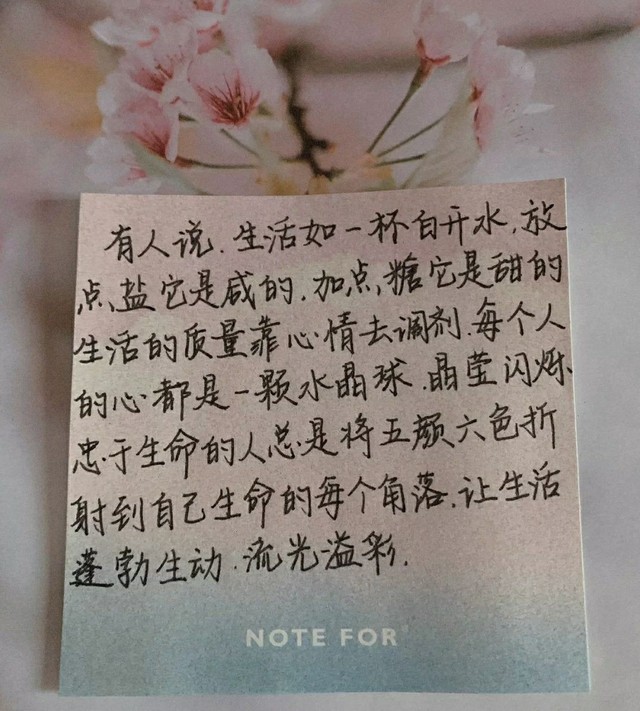 有人说.生活如一杯白开水,放
点盐它是咸的.加点糖它是甜的
生活的质量靠心情去调剂.每个人
的心都是一颗水晶球.晶莹闪烁.
忠于生命的人总是将五颜六色折
射到自己生命的每个角落.让生活
蓬勃生动.流光溢彩.
NOTE FOR